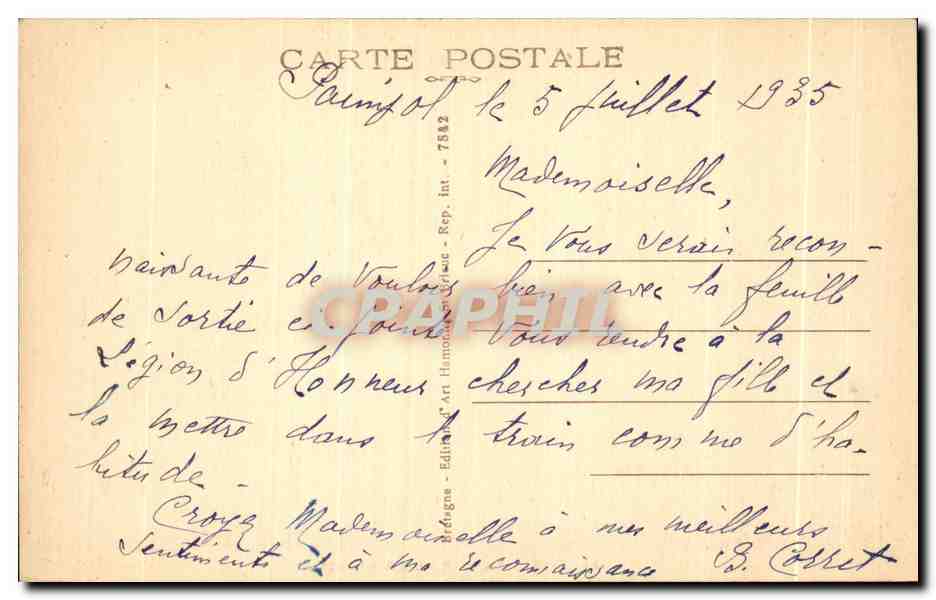 CARTE POSTALE
Paimpol le 5 Juillet 1935
Mademoiselle,
Je Vous serais recon-
naissante de Vouloir bien avec la feuille
de sortie ci-jointe Vous rendre à la
Légion d'Honneur chercher ma fille et
la mettre dans le train comme d'ha-
bitude.
Croyez Mademoiselle à mes meilleurs
sentiments et à ma reconnaissance
B. Corret
Bretagne - Edition d'Art Hamonic - Rep. int. - 7542
CPAPHIL